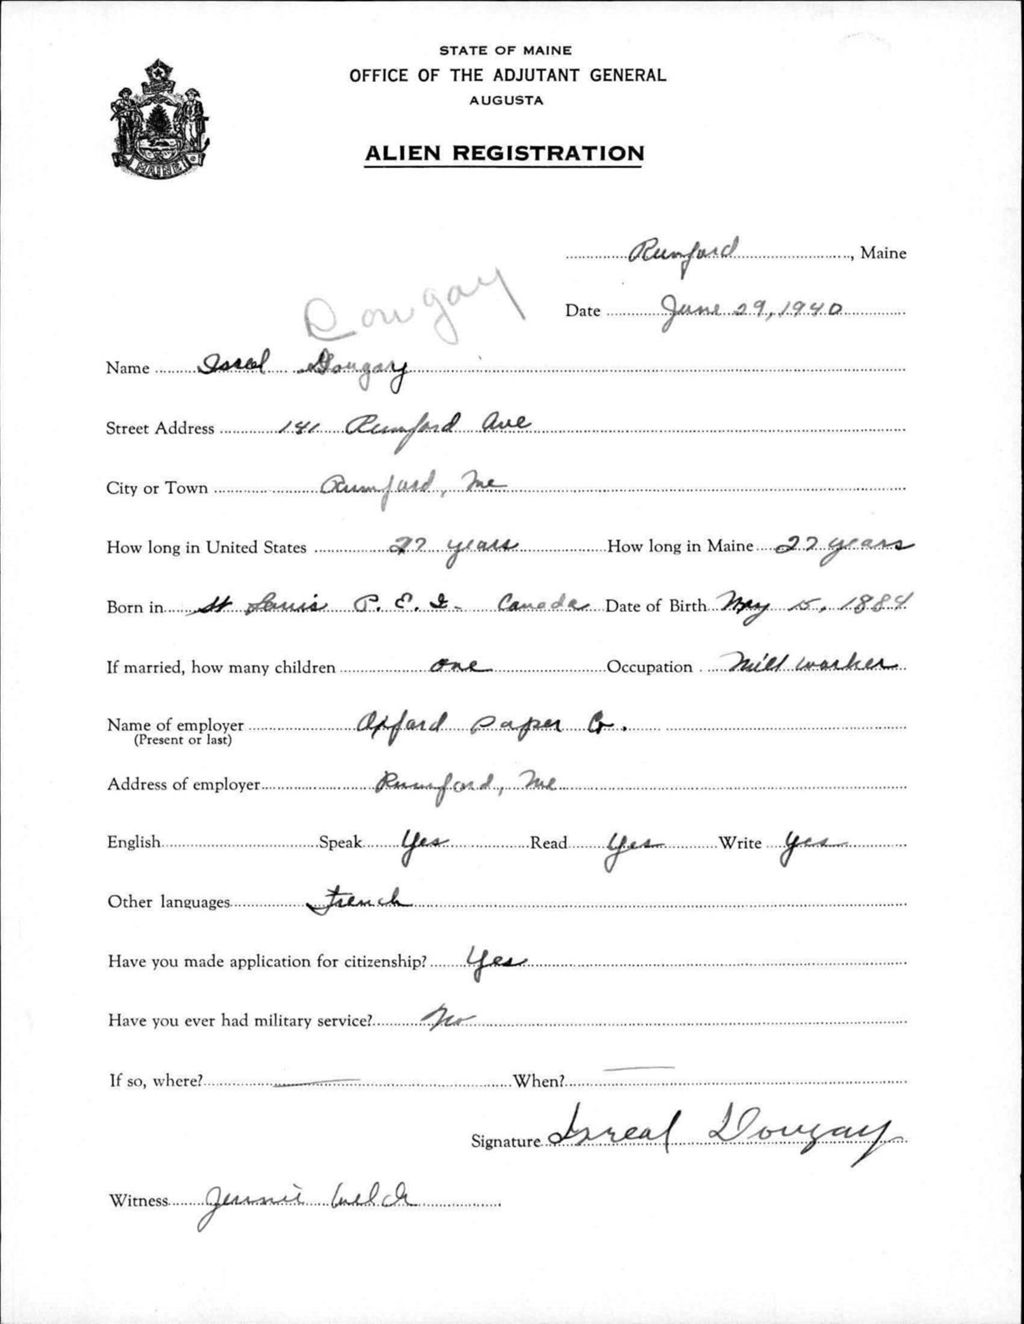 STATE OF MAINE
OFFICE OF THE ADJUTANT GENERAL
AUGUSTA
ALIEN REGISTRATION
MAINE
Rumford, Maine
Dougay
Date June 29, 1940
Name Isreal Dougay
Street Address 141 Rumford Ave
City or Town Rumford, Me
How long in United States 27 years How long in Maine 27 years
Born in St Louis P. E. I. Canada Date of Birth May 15, 1884
If married, how many children one Occupation Mill worker
Name of employer Oxford Paper Co.
(Present or last)
Address of employer Rumford, Me
English Speak Yes Read Yes Write Yes
Other languages French
Have you made application for citizenship? Yes
Have you ever had military service? No
If so, where? When?
Signature Isreal Dougay
Witness Jennie Welch